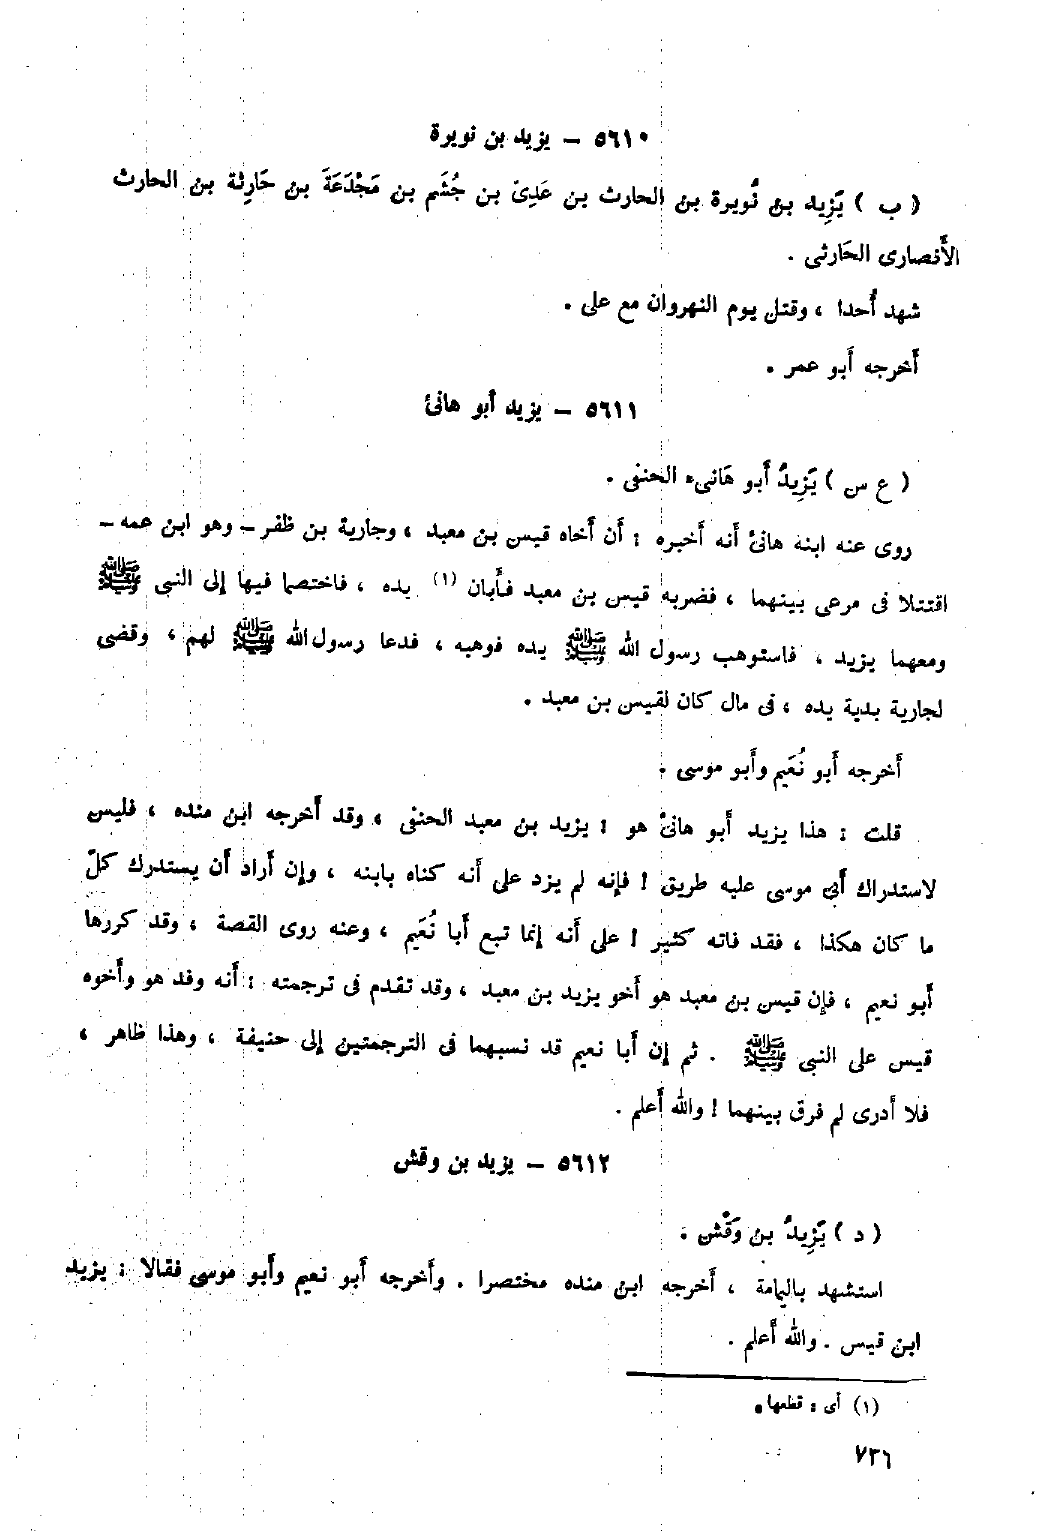 ٥٦١٠ — يزيد بن نويرة
( ب ) يَزِيد بن نُويرة بن الحارث بن عَدِىّ بن جُشَم بن مَجْدَعَةَ بن حَارِثة بن الحارث
الأَنصارى الحَارثى .
شهد أُحدا ، وقتل يوم النهروان مع على .
أَخرجه أَبو عمر .
٥٦١١ — يزيد أبو هانئ
( ع س ) يَزِيدُ أَبو هَانىء الحنفى .
روى عنه ابنه هانئ أَنه أَخبره : أَن أَخاه قيس بن معبد ، وجارية بن ظفر — وهو ابن عمه —
اقتتلا فى مرعى بينهما ، فضربه قيس بن معبد فأَبان (١) يده ، فاختصما فيها إلى النبى ﷺ
ومعهما يزيد ، فاستوهب رسول الله ﷺ يده فوهبه ، فدعا رسول الله ﷺ لهم ، وقضى
لجارية بدية يده ، فى مال كان لقيس بن معبد .
أَخرجه أَبو نُعَيم وأَبو موسى .
قلت : هذا يزيد أَبو هانئ هو : يزيد بن معبد الحنفى ، وقد أَخرجه ابن منده ، فليس
لاستدراك أَبى موسى عليه طريق ! فإنه لم يزد على أَنه كناه بابنه ، وإن أَراد أَن يستدرك كلّ
ما كان هكذا ، فقد فاته كثير ! على أَنه إنما تبع أَبا نُعَيم ، وعنه روى القصة ، وقد كررها
أَبو نعيم ، فإن قيس بن معبد هو أَخو يزيد بن معبد ، وقد تقدم فى ترجمته : أَنه وفد هو وأَخوه
قيس على النبى ﷺ . ثم إن أَبا نعيم قد نسبهما فى الترجمتين إلى حنيفة ، وهذا ظاهر ،
فلا أَدرى لم فرق بينهما ! والله أَعلم .
٥٦١٢ — يزيد بن وقش
( د ) يَزِيدُ بن وَقْش .
استشهد باليمامة ، أَخرجه ابن منده مختصرا . وأَخرجه أَبو نعيم وأَبو موسى فقالا : يزيد
ابن قيس . والله أَعلم .
(١) أى : قطعها .
٧٣٦